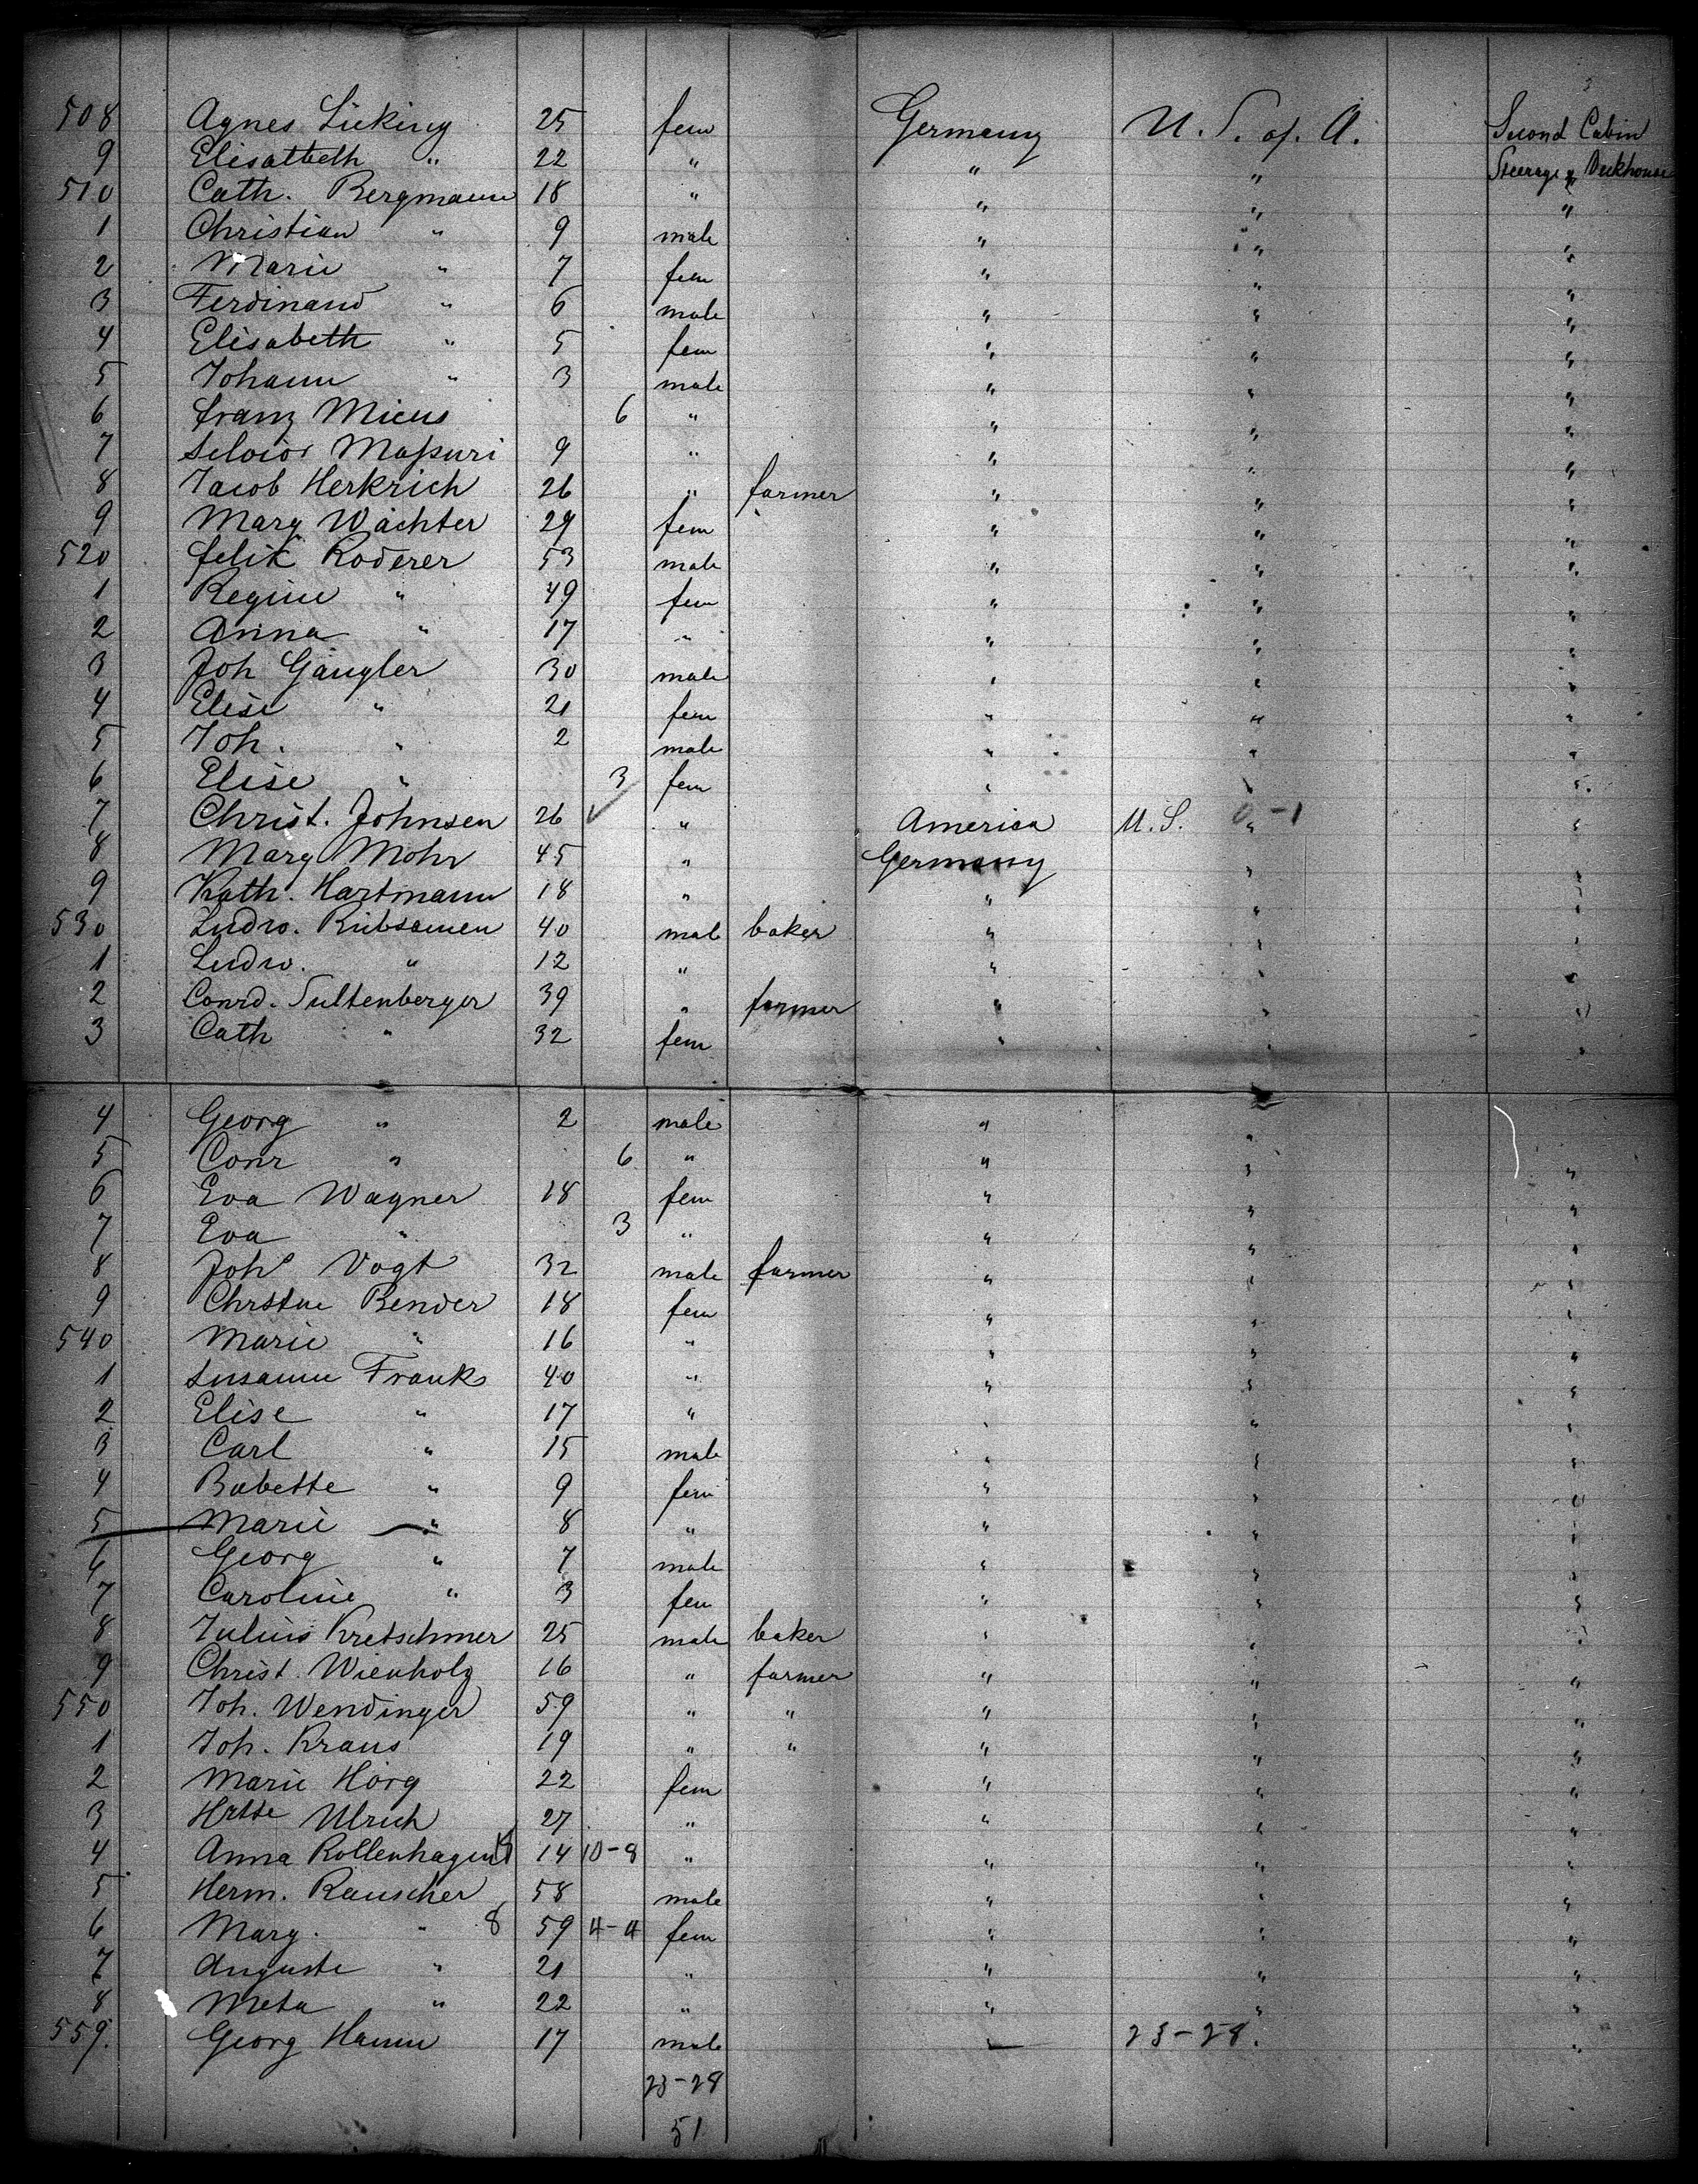 508 Agnes Lieking 25 fem Germany U. S. of. A. Second Cabin
9 Elisatbeth " 22 " " " Steerage & Deckhouse
510 Cath. Bergmann 18 " " " "
1 Christian " 9 male " " "
2 Marie " 7 fem " " "
3 Ferdinand " 6 male " " "
4 Elisabeth " 5 fem " " "
5 Johann " 3 male " " "
6 Franz Micus 6 " " " "
7 9 " " " "
8 Jacob Herkrich 26 " farmer " " "
9 Marg Wächter 29 fem " " "
520 Felix Roderer 53 male " " "
1 Regine " 49 fem " " "
2 Anna " 17 " " " "
3 Joh Gängler 30 male " " "
4 Elise " 21 fem " " "
5 Joh. " 2 male " " "
6 Elise " 3 fem " " "
7 Christ. Johnsen 26 ✓ " America U. S. 0-1 " "
8 Marg Mohr 45 " Germany " "
9 Kath. Hartmann 18 " " " "
530 Ludw. Rübsamen 40 mal baker " " "
1 Ludw. " 12 " " " "
2 Conrd. Sultenberger 39 " farmer " " "
3 Cath " 32 fem " " "
4 Georg " 2 male " "
5 Conr " 6 " " " "
6 Eva Wagner 18 fem " " "
7 Eva " 3 " " " "
8 Joh Vogt 32 male farmer " " "
9 Chrstne Bender 18 fem " " "
540 Marie " 16 " " " "
1 Susanne Frank 40 " " " "
2 Elise " 17 " " " "
3 Carl " 15 male " " "
4 Babette " 9 fem " " "
5 Marie " 8 " " " "
6 Georg " 7 male " " "
7 Caroline " 3 fem " " "
8 Julius Kretschmer 25 male baker " " "
9 Christ. Wienholz 16 " farmer " " "
550 Joh. Wendinger 59 " " " " "
1 Joh. Kraus 19 " " " " "
2 Marie Hörg 22 fem " " "
3 Hrtte Ulrich 27 " " " "
4 Anna Rollenhagen 18 14 10-8 " " " "
5 Herm. Rauscher 58 male " " "
6 Marg. " 8 59 4-4 fem " " "
7 Auguste " 21 " " " "
8 Meta " 22 " " " "
559. Georg Hamm 17 male " 23-28. "
23-28
51